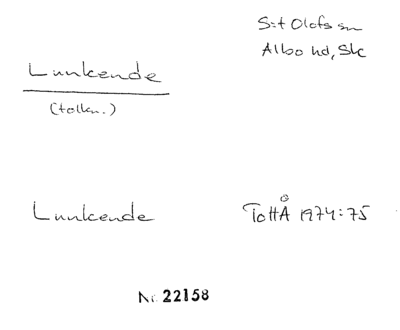 S:t Olofs sn
Albo hd, Sk
Lunkende
(tolkn.)
Lunkende
ToHÅ 1974:75
Nr. 22158